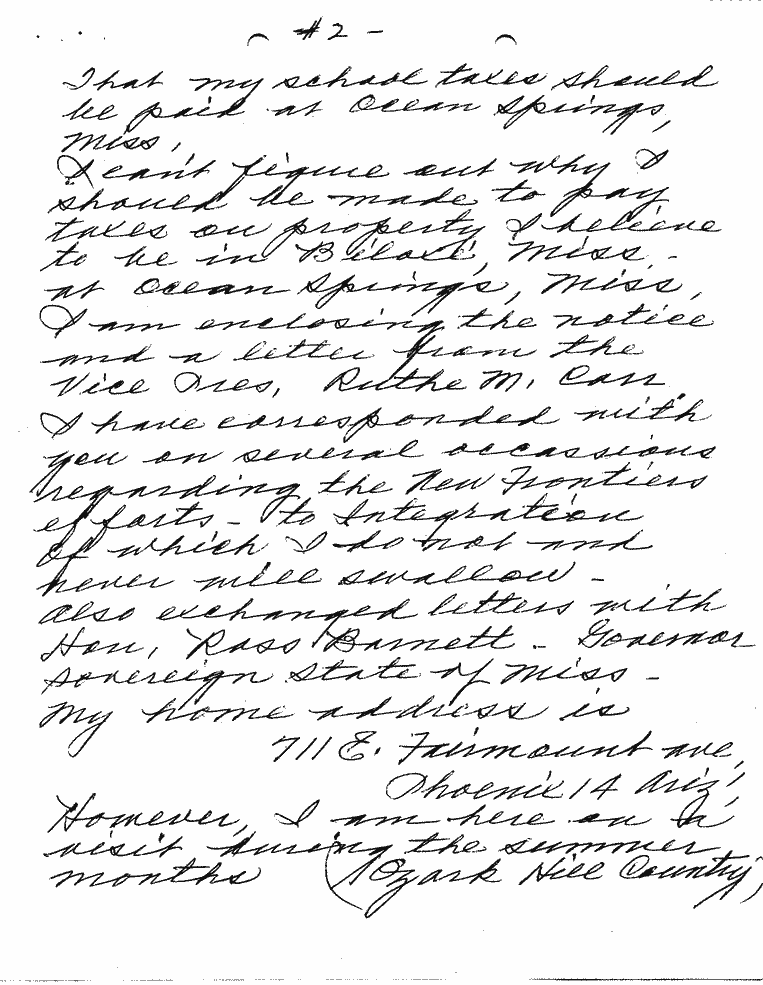 #2 -
That my school taxes should
be paid at Ocean Springs,
Miss,
I can't figure out why I
should be made to pay
taxes on property I believe
to be in Biloxi, Miss -
at Ocean Springs, Miss,
I am enclosing the notice
and a letter from the
Vice Pres, Ruthe M. Carr
I have corresponded with
you on several occassions
regarding the New Frontiers
efforts - to Integration
of which I do not and
never will swallow -
also exchanged letters with
Hon, Ross Barnett - Governor
sovereign State of Miss -
My home address is
711 E. Fairmount ave,
Phoenix 14 Ariz,
However, I am here on a
visit during the summer
months (Ozark Hill Country)